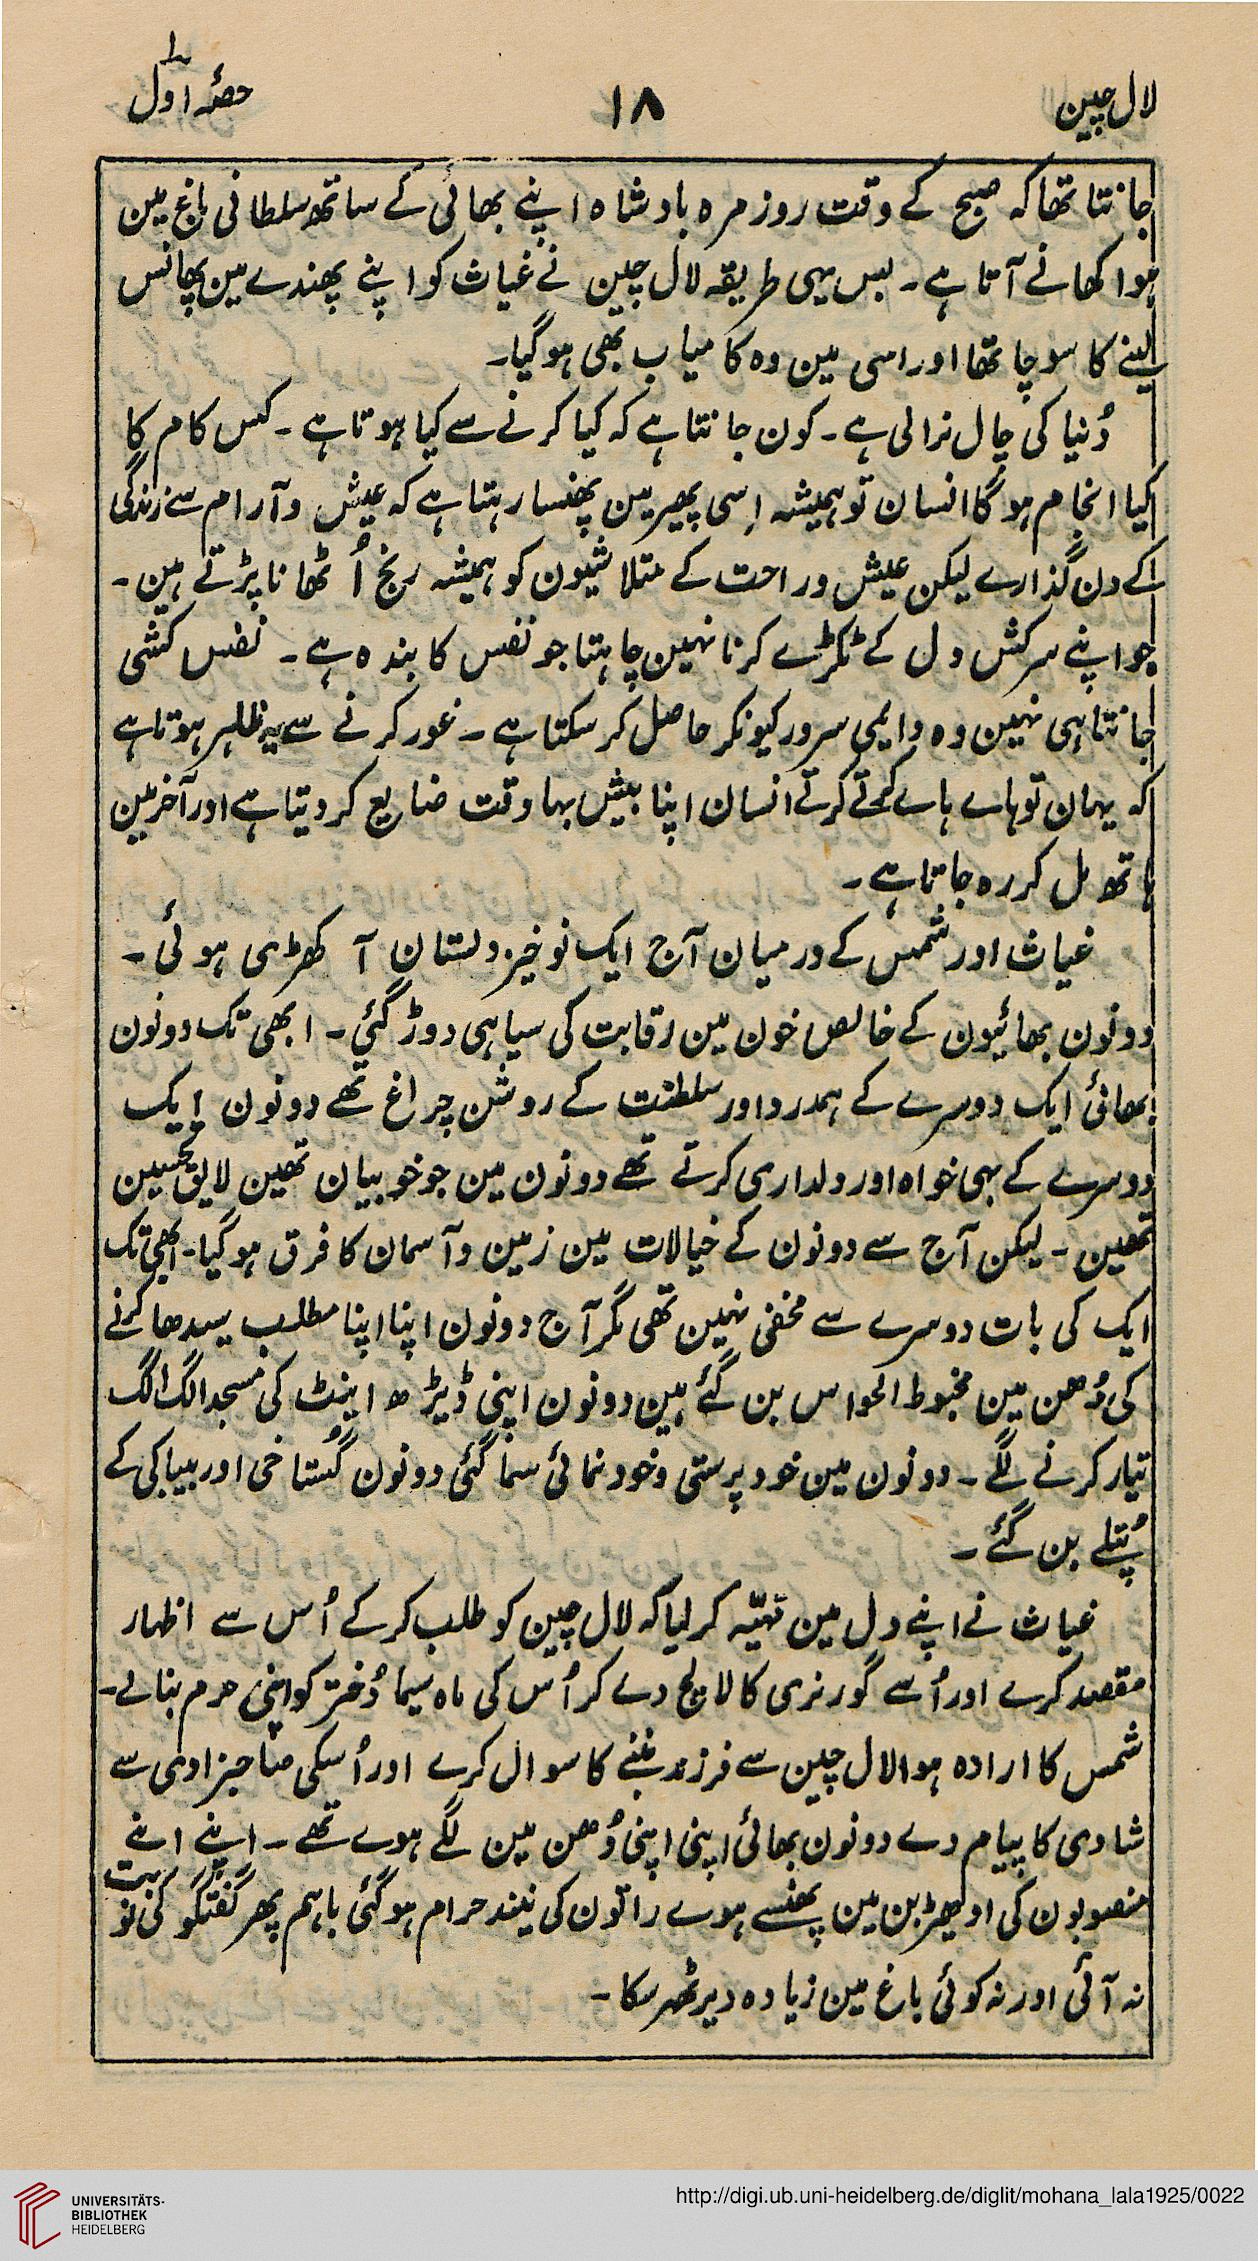 لال چین
۱۸
حصّہ اوّل
جانتا تھا کہ صبح کے وقت روزمرہ بادشاہ اپنے بھائی کے ساتھ سلطانی باغ مین
ہوا کھانے آتا ہے۔ بس یہی طریقہ لال چین نے غیاث کو اپنے پھندے مین پھانس
لینے کا سوچا تھا اور اسی مین وہ کامیاب بھی ہو گیا۔
دُنیا کی چال نرالی ہے۔ کون جانتا ہے کہ کیا کرنے سے کیا ہوتا ہے۔ کس کام کا
کیا انجام ہوگا انسان تو ہمیشہ اِسی پھیر مین پھنسا رہتا ہے کہ عیش و آرام سے زندگی
کے دن گذارے لیکن عیش و راحت کے متلاشیون کو ہمیشہ رنج اُٹھانا پڑتے ہین۔
جو اپنے سرکش دل کے ٹکڑے کرنا نہین چاہتا جو نفس کا بندہ ہے۔ نفس کشی
جانتا ہی نہین وہ دایمی سرور کیونکر حاصل کر سکتا ہے۔ غور کرنے سے یہ ظاہر ہوتا ہے
کہ یہان تو ہاے ہاے کرتے کرتے انسان اپنا بیش بہا وقت ضایع کر دیتا ہے اور آخر مین
ہاتھ مل کر رہ جاتا ہے۔
غیاث اور شمس کے درمیان آج ایک نوخیز دلستان آ کھڑی ہوئی۔
دونون بھائیون کے خالص خون مین رقابت کی سیاہی دوڑ گئی۔ ابھی تک دونون
بھائی ایک دوسرے کے ہمدرد اور سلطنت کے روشن چراغ تھے دونون ایک
دوسرے کے بہی خواہ اور دلداری کرتے تھے دونون مین جو خوبیان تھین لایق تحسین
تھین۔ لیکن آج سے دونون کے خیالات مین زمین و آسمان کا فرق ہو گیا۔ ابھی تک
ایک کی بات دوسرے سے مخفی نہین تھی مگر آج دونون اپنا اپنا مطلب سیدھا کرنے
کی دُھن مین مخبوط الحواس بن گئے ہین دونون اپنی ڈیڑھ اینٹ کی مسجد الگ الگ
تیار کرنے لگے۔ دونون مین خود پرستی و خود نمائی سما گئی دونون گستاخی اور بیباکی کے
پُتلے بن گئے۔
غیاث نے اپنے دل مین تہیّہ کر لیا کہ لال چین کو طلب کر کے اُس سے اظہار
مقصد کرے اور اُسے گورنری کا لالچ دے کر اُس کی ماہ سیما دُختر کو اپنی حرم بنالے۔
شمس کا ارادہ ہوا لال چین سے فرزند بننے کا سوال کرے اور اُسکی صاحبزادی سے
شادی کا پیام دے دونون بھائی اپنی اپنی دُھن مین لگے ہوے تھے۔ اپنے اپنے
منصوبون کی اودھیڑ بن مین پھنسے ہوے راتون کی نیند حرام ہو گئی باہم پھر گفتگو کی نوبت
نہ آئی اور نہ کوئی باغ مین زیادہ دیر ٹھہر سکا۔
UNIVERSITÄTS-
BIBLIOTHEK
HEIDELBERG
http://digi.ub.uni-heidelberg.de/diglit/mohana_lala1925/0022